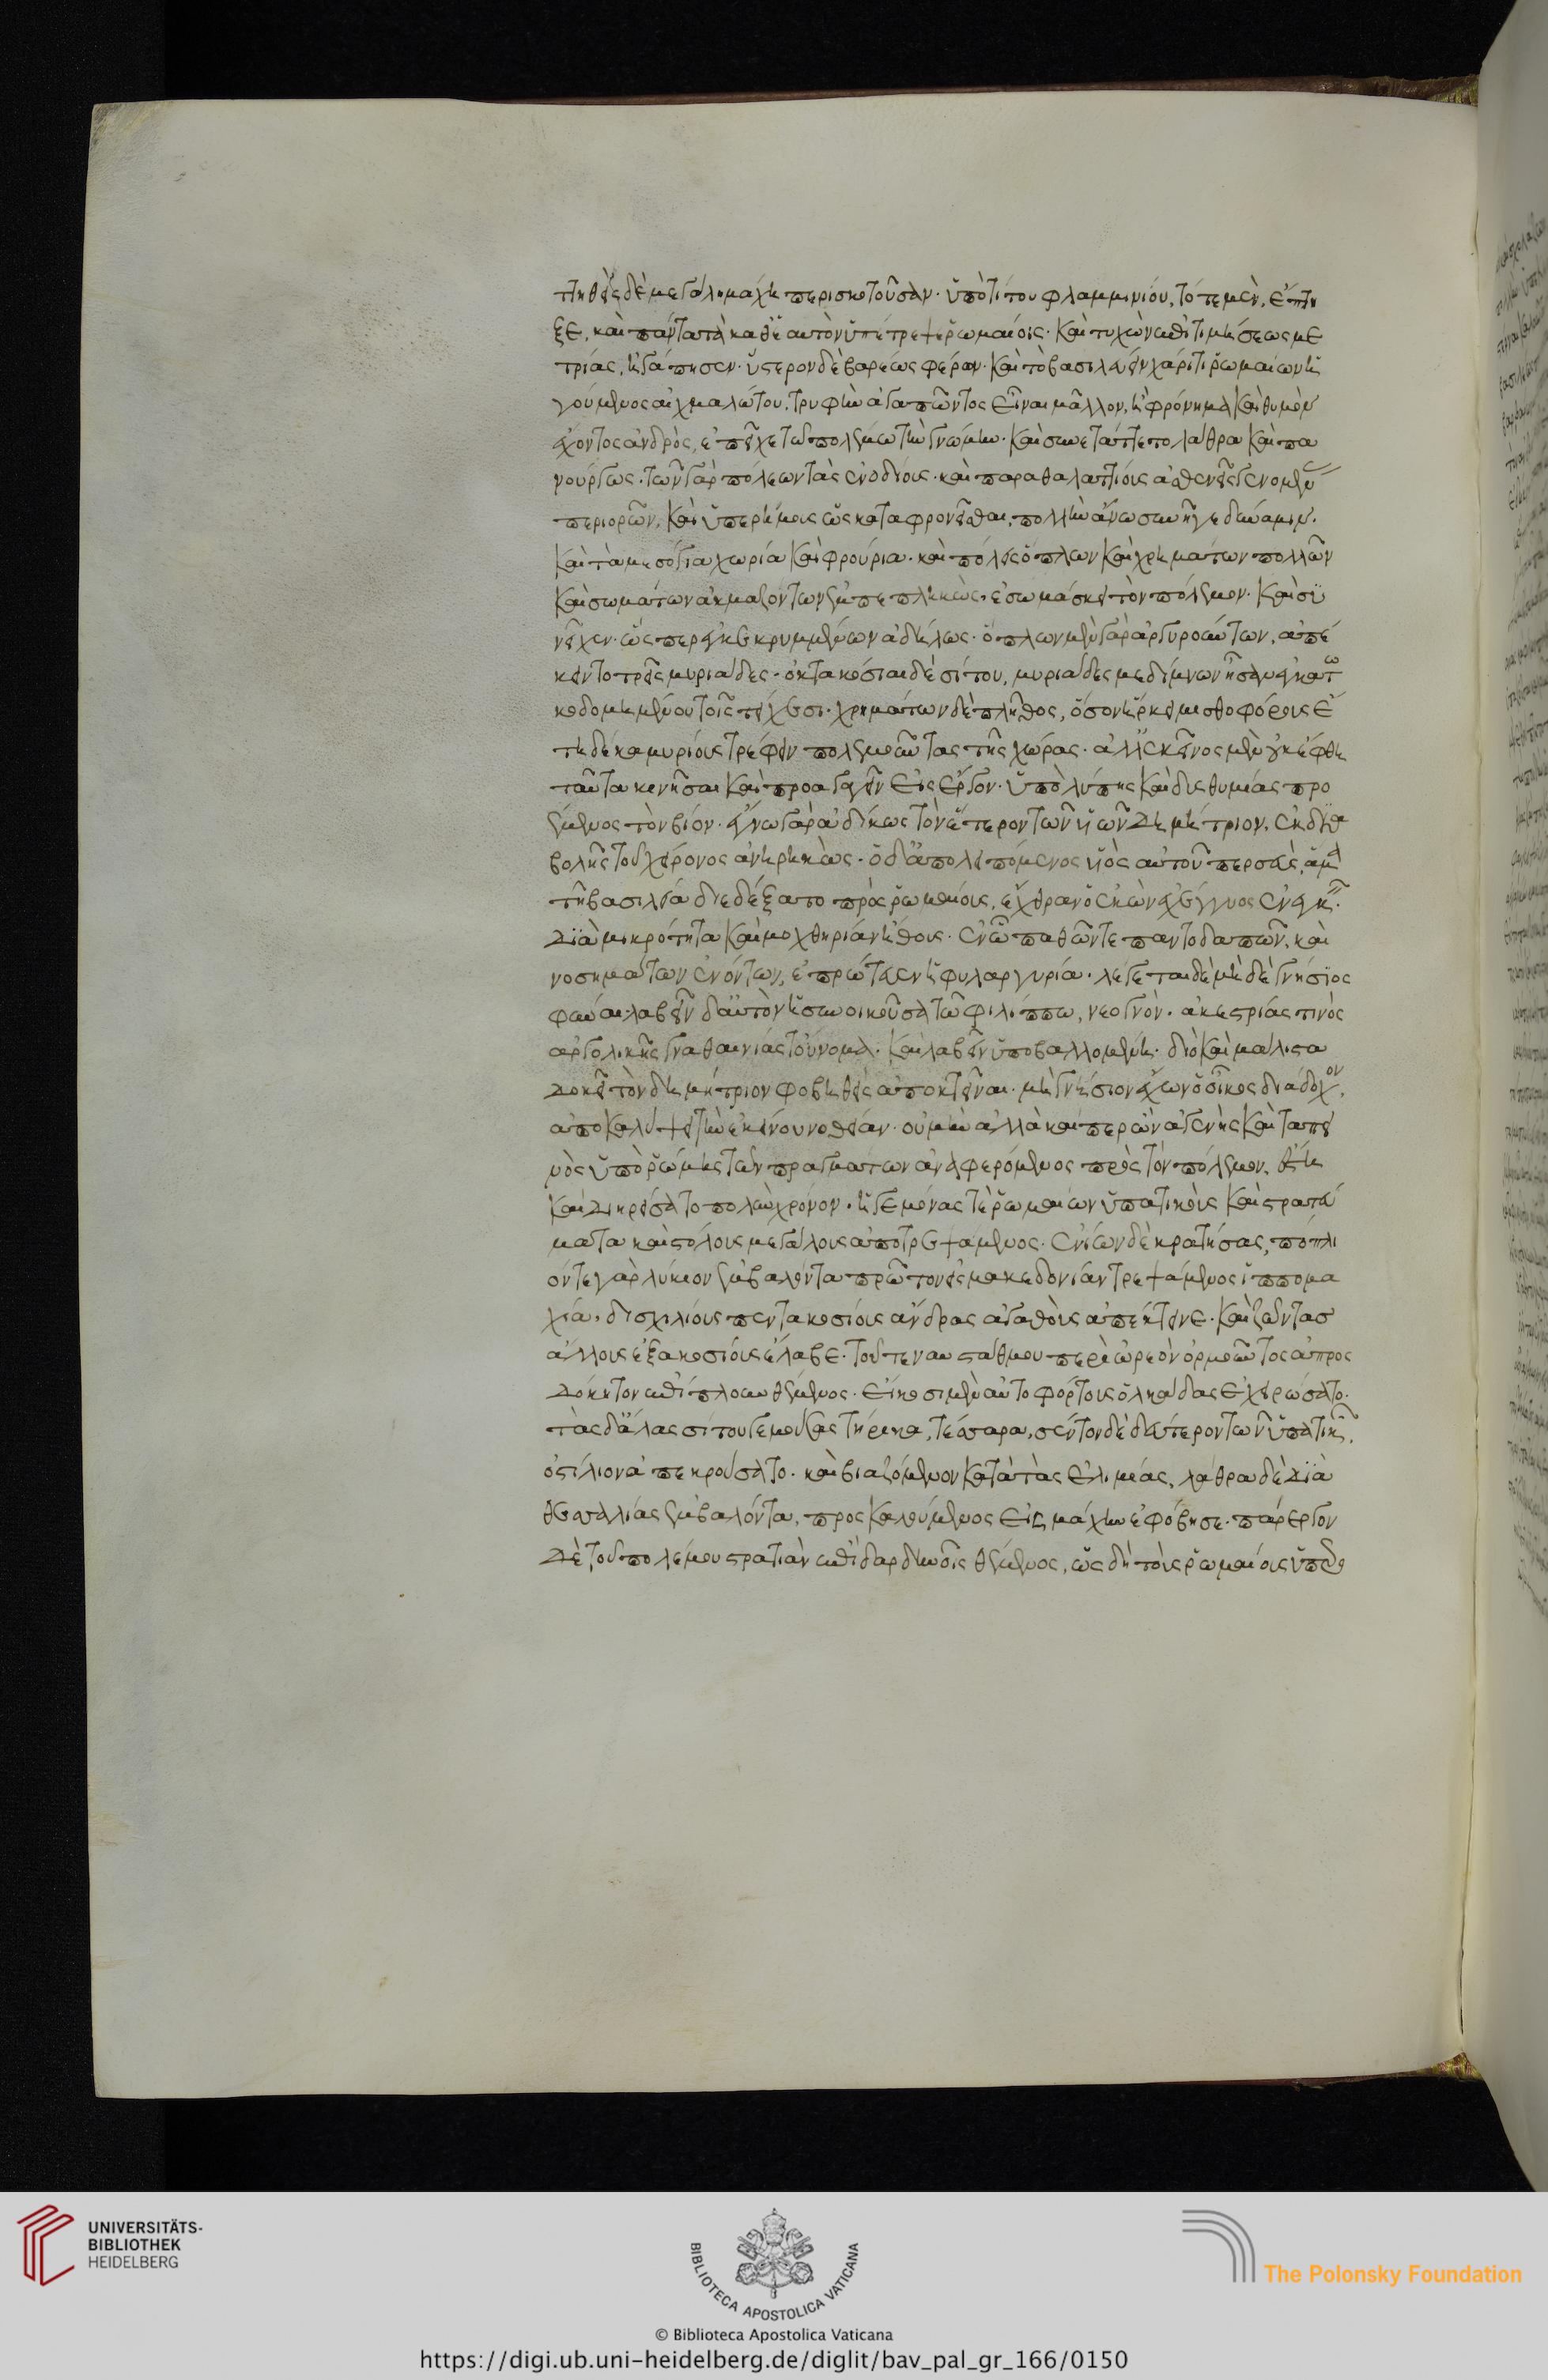 ττηθεὶς δὲ μεγάλη μάχη περισκοτοῦσαν· ὑπὸ τίτου φλαμμινίου, τότε μὲν, ἔπτη
ξε, καὶ πάντα τὰ καθ' ἑαυτὸν ὑπέτρεψε ῥωμαίοις· καὶ τυχὼν ἐπιτιμήσεως με
τρίας, ἠγάπησεν· ὕστερον δὲ βαρέως φέρων· καὶ τὸ βασιλεύειν χάριτι ῥωμαίων ἡ
γούμενος αἰχμαλώτου, τρυφὴν ἀγαπῶντος εἶναι μᾶλλον, ἢ φρόνημα καὶ θυμὸν
ἔχοντος ἀνδρὸς, ἐπεῖχε τῶ πολέμω τὴν γνώμην· καὶ συνετάττετο λάθρα καὶ πα
νούργως· τῶν γὰρ πόλεων τὰς ἐνοδίους· καὶ παραθαλαττίους ἀσθενεῖς γενομένας
περιορῶν, καὶ ὑπερήμους ὡς καταφρονεῖσθαι, πολλὴν ἄνω συνῆγε δύναμιν·
καὶ τὰ μεσόγια χωρία καὶ φρούρια· καὶ πόλεις ὅπλων καὶ χρημάτων πολλῶν
καὶ σωμάτων ἀκμαζόντων ἐμπεπληκὼς, ἐσωμάσκει τὸν πόλεμον· καὶ συ
νεῖχεν· ὥσπερ ἐγκεκρυμμένων ἀδήλως· ὅπλων μὲν γὰρ ἀργυρούντων, ἀπέ
κειντο τρεῖς μυριάδες· ὀκτακόσιαι δὲ σίτου, μυριάδες μεδίμνων ἦσαν ἐγκατω
κοδομημένου τοῖς τείχεσι· χρημάτων δὲ πλῆθος, ὅσον ἤρκει μισθοφόρους ἔ
τη δέκα μυρίους τρέφειν πολεμοῦντας τῆς χώρας· ἀλλ' ἐκεῖνος μὲν οὐκ ἔφθη
ταῦτα κινῆσαι καὶ προαγαγεῖν εἰς ἔργον· ὑπὸ λύπης καὶ δυσθυμίας προ
έμενος τὸν βίον· ἔγνω γὰρ ἀδίκως τὸν ἕτερον τῶν υἱῶν δημήτριον, ἐκ δια
βολῆς τοῦ χείρονος ἀνηρηκὼς· ὁ δ' ἀπολειπόμενος υἱὸς αὐτοῦ περσεὺς, ἅμα
τῆ βασιλεία διεδέξατο πρὸς ῥωμαίους, ἔχθραν οὐκ ὢν ἐχέγγυος ἐνεγκεῖν·
διὰ μικρότητα καὶ μοχθηρίαν ἤθους· ἐν ᾧ παθῶν τε παντοδαπῶν, καὶ
νοσημάτων ἐνόντων, ἐπρώτευεν ἡ φιλαργυρία· λέγεται δὲ μὴ δὲ γνήσιος
φῦναι· λαβεῖν δ' αὐτὸν ἡ συνοικοῦσα τῶ φιλίππω, νεογνὸν· ἀκεστρίας τινὸς
ἀργολικῆς γναθαινίας τοὔνομα· καὶ λαβεῖν ὑποβαλλομένη· διὸ καὶ μάλιστα
δοκεῖ τὸν δημήτριον φοβηθεὶς ἀποκτεῖναι· μὴ γνήσιον ἔχων ὁ οἶκος διάδοχον,
ἀποκαλύψει τὴν ἐκείνου νοθείαν· οὐ μὴν ἀλλὰ καίπερ ὢν ἀγενὴς καὶ ταπει
νὸς ὑπὸ ῥώμης τῶν πραγμάτων ἀναφερόμενος πρὸς τὸν πόλεμον, ἔστη
καὶ διηρείσατο πολὺν χρόνον· ἡγεμόνας τε ῥωμαίων ὑπατικοὺς καὶ στρατεύ
ματα καὶ στόλους μεγάλους ἀποτρεψάμενος· ἐνίων δὲ κρατήσας, πόπλι
όν τε γὰρ λύκιον ἐμβαλόντα πρῶτον εἰς μακεδονίαν τρεψάμενος ἱππομα
χία· δισχιλίους πεντακοσίους ἄνδρας ἀγαθοὺς ἀπέκτεινε· καὶ ζῶντας
ἄλλους ἑξακοσίους ἔλαβε· τοῦ τε ναυστάθμου περὶ ὠρεὸν ὁρμοῦντος ἀπρος
δόκητον ἐπίπλουν θέμενος· εἴκοσι μὲν αὐτοφόρτους ὁλκάδας ἐχειρώσατο·
τὰς δ' ἄλλας σίτου γεμούσας πεντήρεις, τέσσαρα, σεύτον δὲ δεύτερον τῶν ὑπατικῶν,
ὁστίλιον ἀπεκρούσατο· καὶ βιαζόμενον κατὰ τὰς ἐλιμείας, λάθρα δὲ διὰ
θεσσαλίας ἐμβαλόντα, προσκαλούμενος εἰς μάχην ἐφόβησε· πάρεργον
δὲ τοῦ πολέμου στρατιὰν ἐπὶ δαρδανοῖς θέμενος, ὡς δὴ τοὺς ῥωμαίους ὑπερο
UNIVERSITÄTS-
BIBLIOTHEK
HEIDELBERG
BIBLIOTECA APOSTOLICA VATICANA
The Polonsky Foundation
© Biblioteca Apostolica Vaticana
https://digi.ub.uni-heidelberg.de/diglit/bav_pal_gr_166/0150